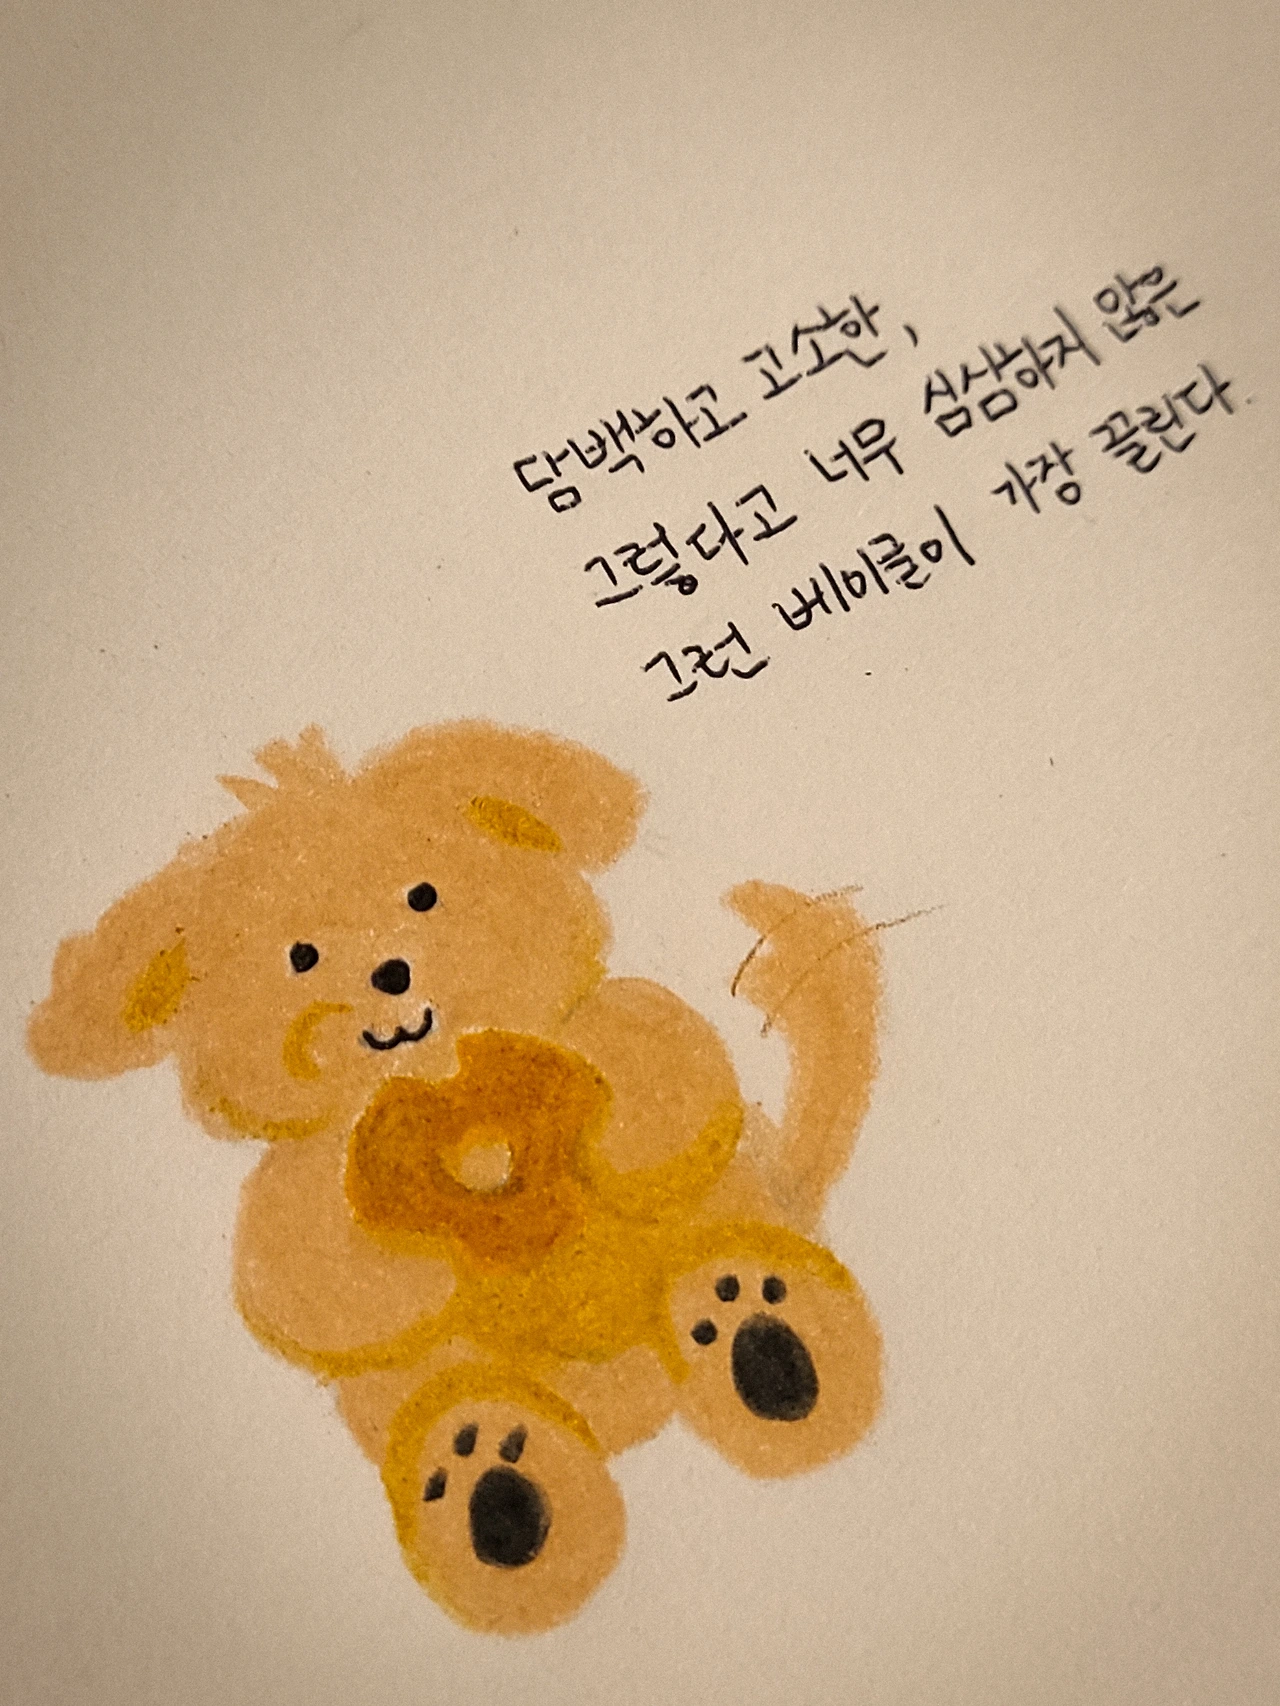 담백하고 고소한,
그렇다고 너무 심심하지 않은
그런 베이글이 가장 끌린다.